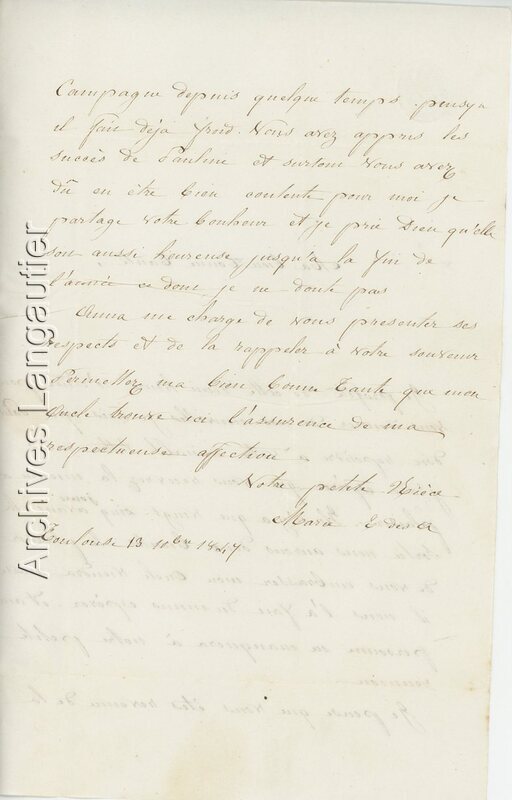 Campagne depuis quelque temps. puisqu
il fait déja froid. Vous avez appris les
succès de Pauline et surtout vous avez
dû en être bien contente pour moi je
partage votre bonheur et je prie Dieu qu'elle
soit aussi heureuse jusqu'a la fin de
l'année ce dont je ne doute pas
Anna me charge de vous presenter ses
respects et de la rappeler à votre souvenir
Permettez ma bien bonne Tante que mon
Oncle trouve ici l'assurence de ma
respectueuse affection
Votre petite Nièce
Marie E des
Toulouse 13 1847
Archives Langautier